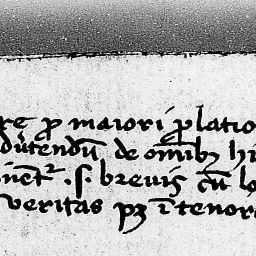 re ꝓ maiori ꝓlatio
dūtendū de om̄ibꝫ hi
inētᷣ .ſ. brevis cū lo
veritas pꝫ ī tenor